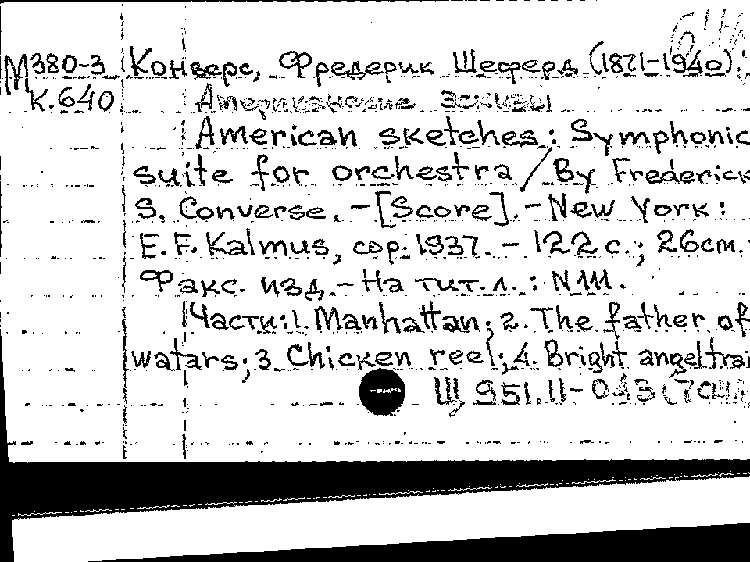 М380-3 Конверс, Фредерик Шеферд (1871-1940).
К.640 Американские эскизы
American sketches: Symphonic
suite for orchestra / By Frederick
S. Converse. - [Score]. - New York:
E. F. Kalmus, cop. 1937. - 122 с.; 26см.
Факс. изд. - На тит. л.: N 111.
Части: 1. Manhattan; 2. The father of
watars; 3. Chicken reel; 4. Bright angel trai
Щ 951.11-043(7США